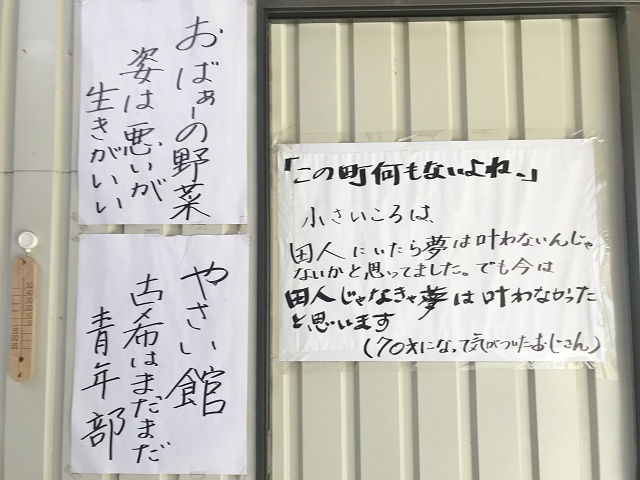 おばぁーの野菜
姿は悪いが
生きがいい
やさい館
古希はまだまだ
青年部
「この町何もないよね、」
小さいころは、
田人にいたら夢は叶わないんじゃ
ないかと思ってました。でも今は
田人じゃなきゃ夢は叶わなかった
と思います
(70才になって気がついたおじさん)